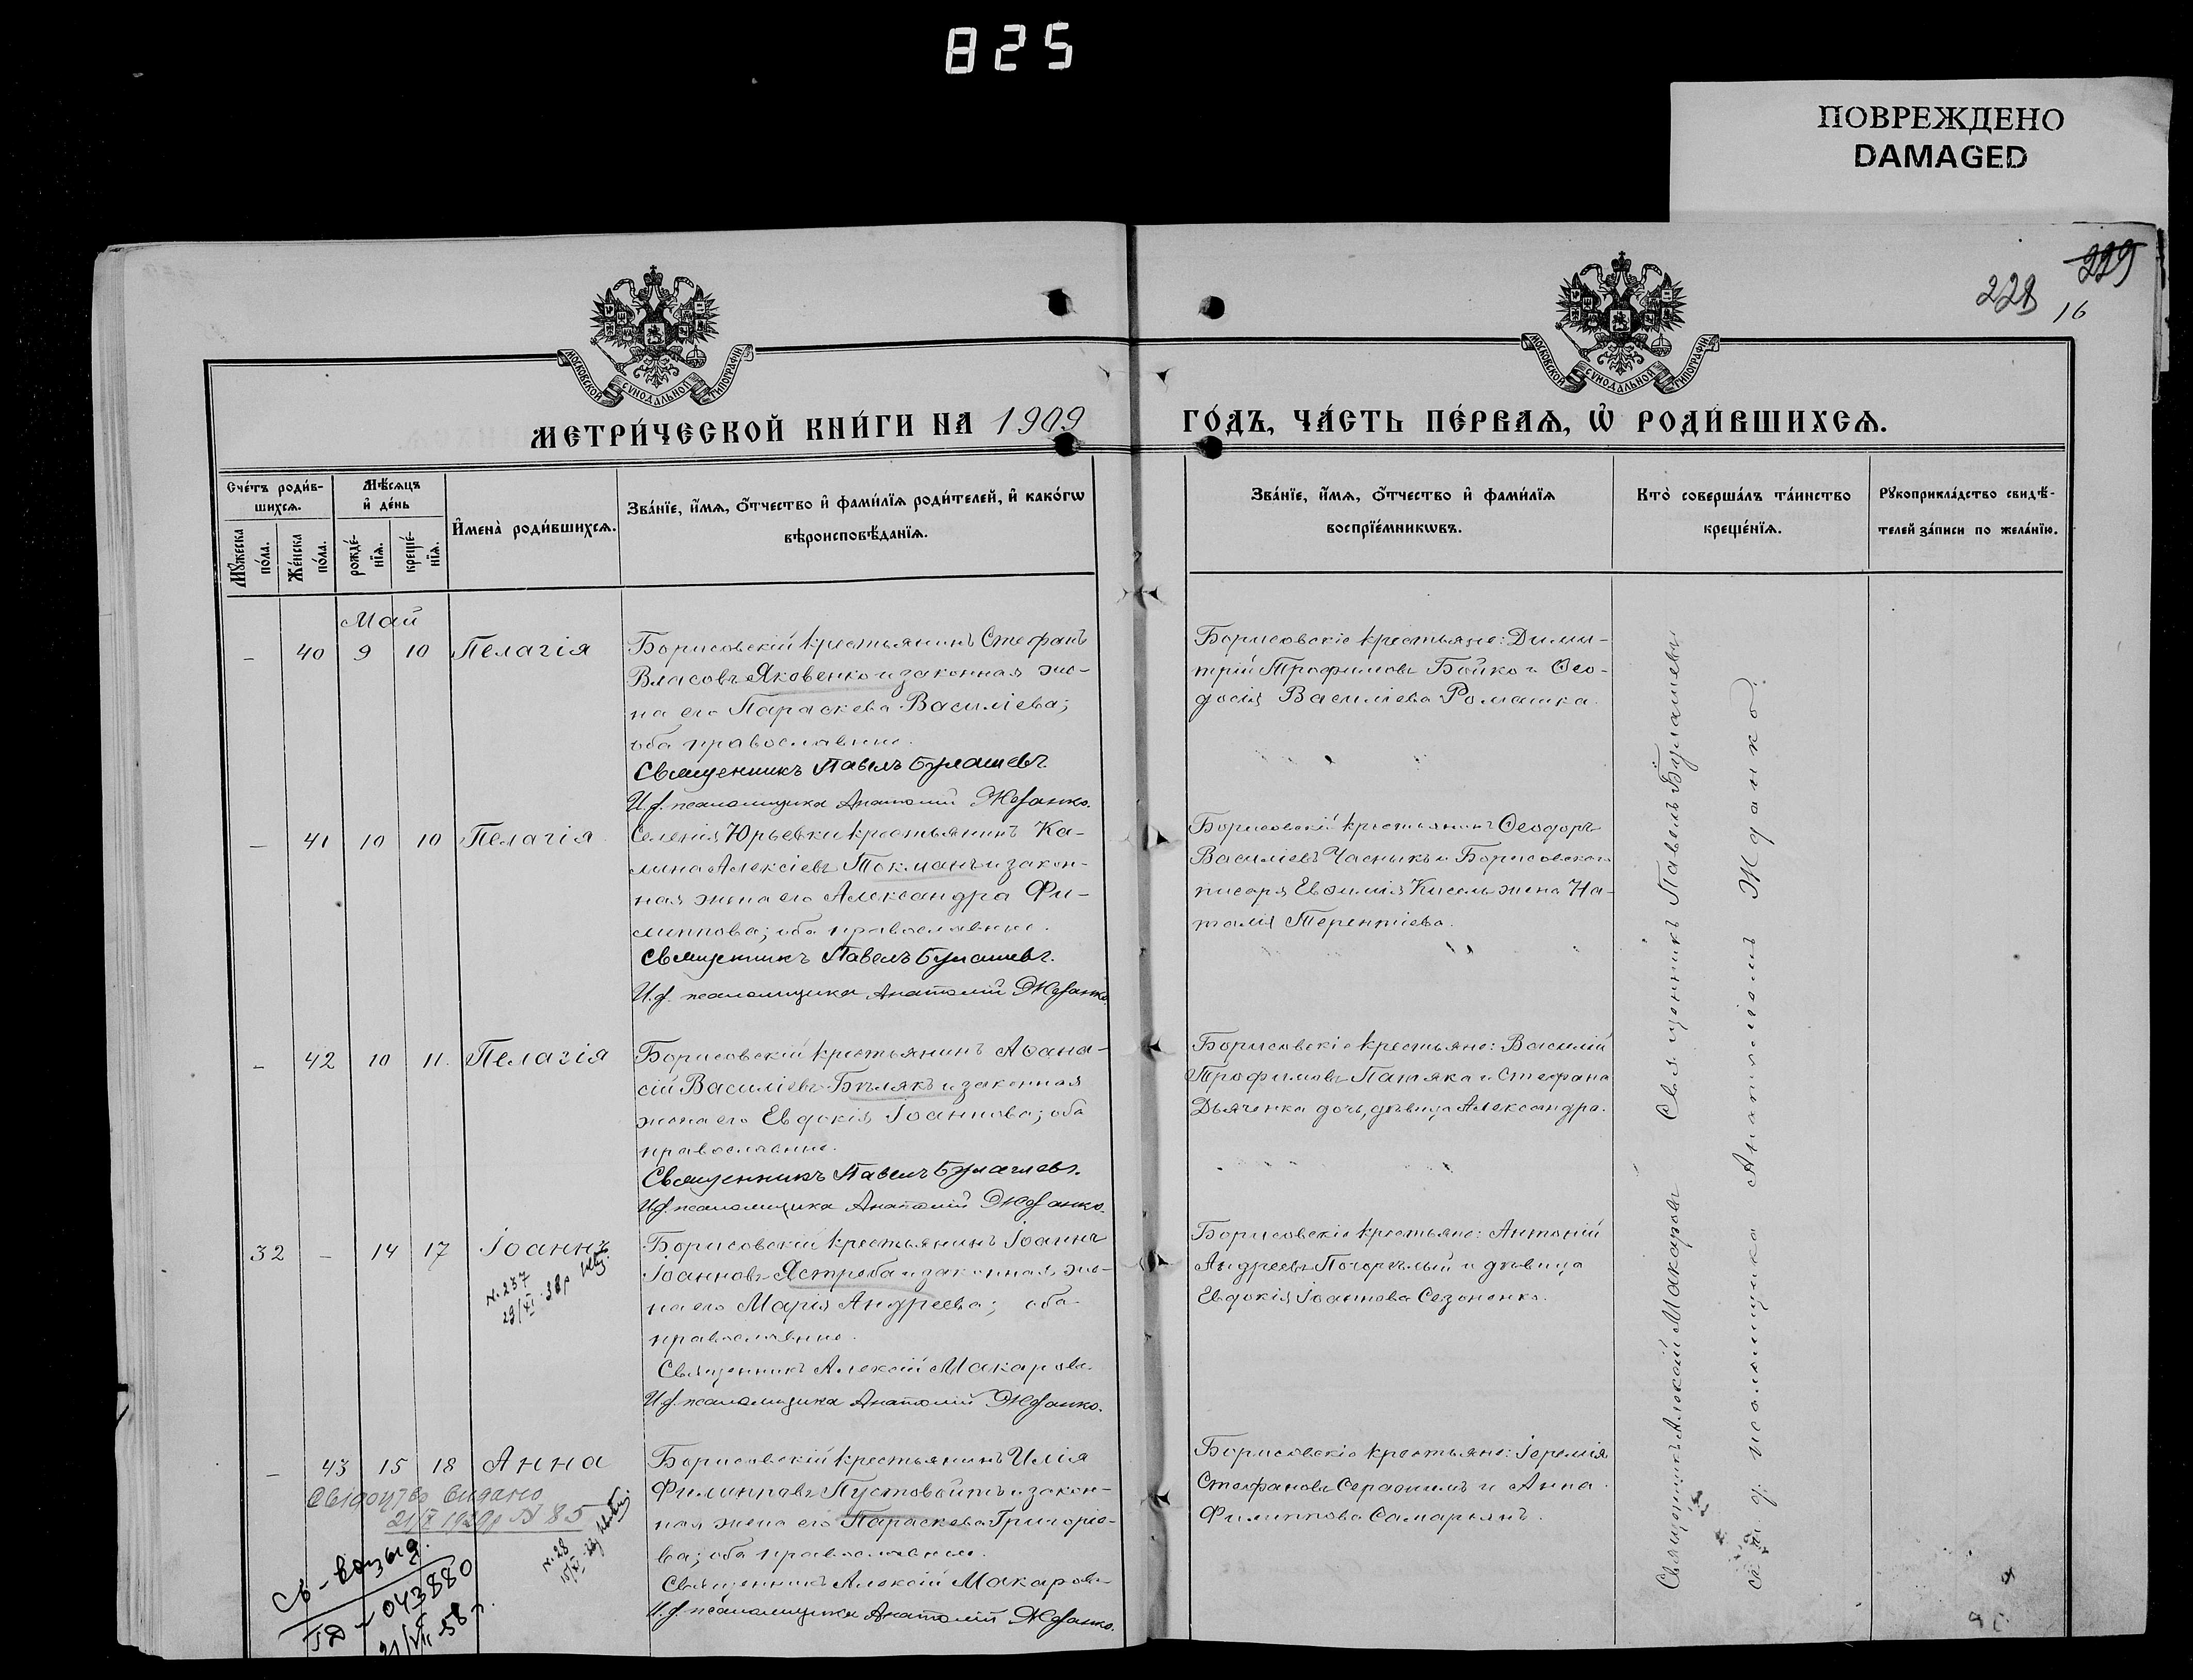 825
ПОВРЕЖДЕНО
DAMAGED
229
228
16
МОСКОВСКОЙ СУНОДАЛЬНОЙ ТИПОГРАФІИ
МОСКОВСКОЙ СУНОДАЛЬНОЙ ТИПОГРАФІИ
МЕТРИ́ЧЕСКОЙ КНИ́ГИ НА 1909 ГО́ДЪ, ЧА́СТЬ ПЕ́РВАѦ, Ѡ҆ РОДИ́ВШИХСѦ.
Сче́тъ роди́в-
шихсѧ.
Мꙋ́жеска по́ла.
Же́нска по́ла.
Мѣ́сѧцъ
и҆ де́нь
рожде́-
нїѧ.
креще́-
нїѧ.
И҆мена̀ роди́вшихсѧ.
Зва́нїе, и҆́мѧ, ѻ҆́тчество и҆ фами́лїѧ роди́телей, и҆ како́гѡ
вѣроисповѣ́данїѧ.
Зва́нїе, и҆́мѧ, ѻ҆́тчество и҆ фами́лїѧ
воспрїе́мникѡвъ.
Кто̀ соверша́лъ та́инство
креще́нїѧ.
Рꙋкоприкла́дство свидѣ́-
телей за́писи по жела́нїю.
Май
– 40 9 10 Пелагія
Борисовскій крестьянинъ Стефанъ
Власовъ Яковенко и законная же-
на его Параскева Василіева;
оба православные.
Священникъ Павелъ Булашевъ.
И. д. псаломщика Анатолій Жданко.
Борисовскіе крестьяне: Дими-
трій Трофимовъ Бойко и Ѳео-
досія Василіева Ромашка.
– 41 10 10 Пелагія
Селенія Юрьевки крестьянинъ Ка-
лина Алексіевъ Токманъ и закон-
ная жена его Александра Фи-
липпова; оба православные.
Священникъ Павелъ Булашевъ.
И. д. псаломщика Анатолій Жданко.
Борисовскій крестьянинъ Ѳеодоръ
Василіевъ Часныкъ и Борисовскаго
писаря Евѳимія Кисель жена На-
талія Терентіева.
– 42 10 11. Пелагія
Борисовскій крестьянинъ Аѳана-
сій Василіевъ Бѣлякъ и законная
жена его Евдокія Іоаннова; оба
православные.
Священникъ Павелъ Булашевъ.
И. д. псаломщика Анатолій Жданко.
Борисовскіе крестьяне: Василій
Трофимовъ Патяка и Стефана
Дьяченка дочь, дѣвица Александра.
32 – 14 17 Іоаннъ
N. 237
29/XI 38р
Борисовскій крестьянинъ Іоаннъ
Іоанновъ Ястреба и законная же-
на его Марія Андреева; оба
православные.
Священникъ Алексій Макаровъ
И. д. псаломщика Анатолій Жданко.
Борисовскіе крестьяне: Антоній
Андреевъ Погорѣлый и дѣвица
Евдокія Іоаннова Сезоненко.
– 43 15 18 Анна
Свідоцтво видано
N 85
N. 28
Борисовскій крестьянинъ Илія
Филипповъ Пустовойтъ и закон-
ная жена его Параскева Григоріе-
ва; оба православные.
Священникъ Алексій Макаровъ
И. д. псаломщика Анатолій Жданко.
Борисовскіе крестьяне: Іеремія
Стефановъ Серафимъ и Анна
Филиппова Самарьянъ.
ГД – 043880
21/VII 58 г.
Священникъ Алексій Макаровъ Священникъ Павелъ Булашевъ
съ и. д. псаломщика Анатоліемъ Жданко.